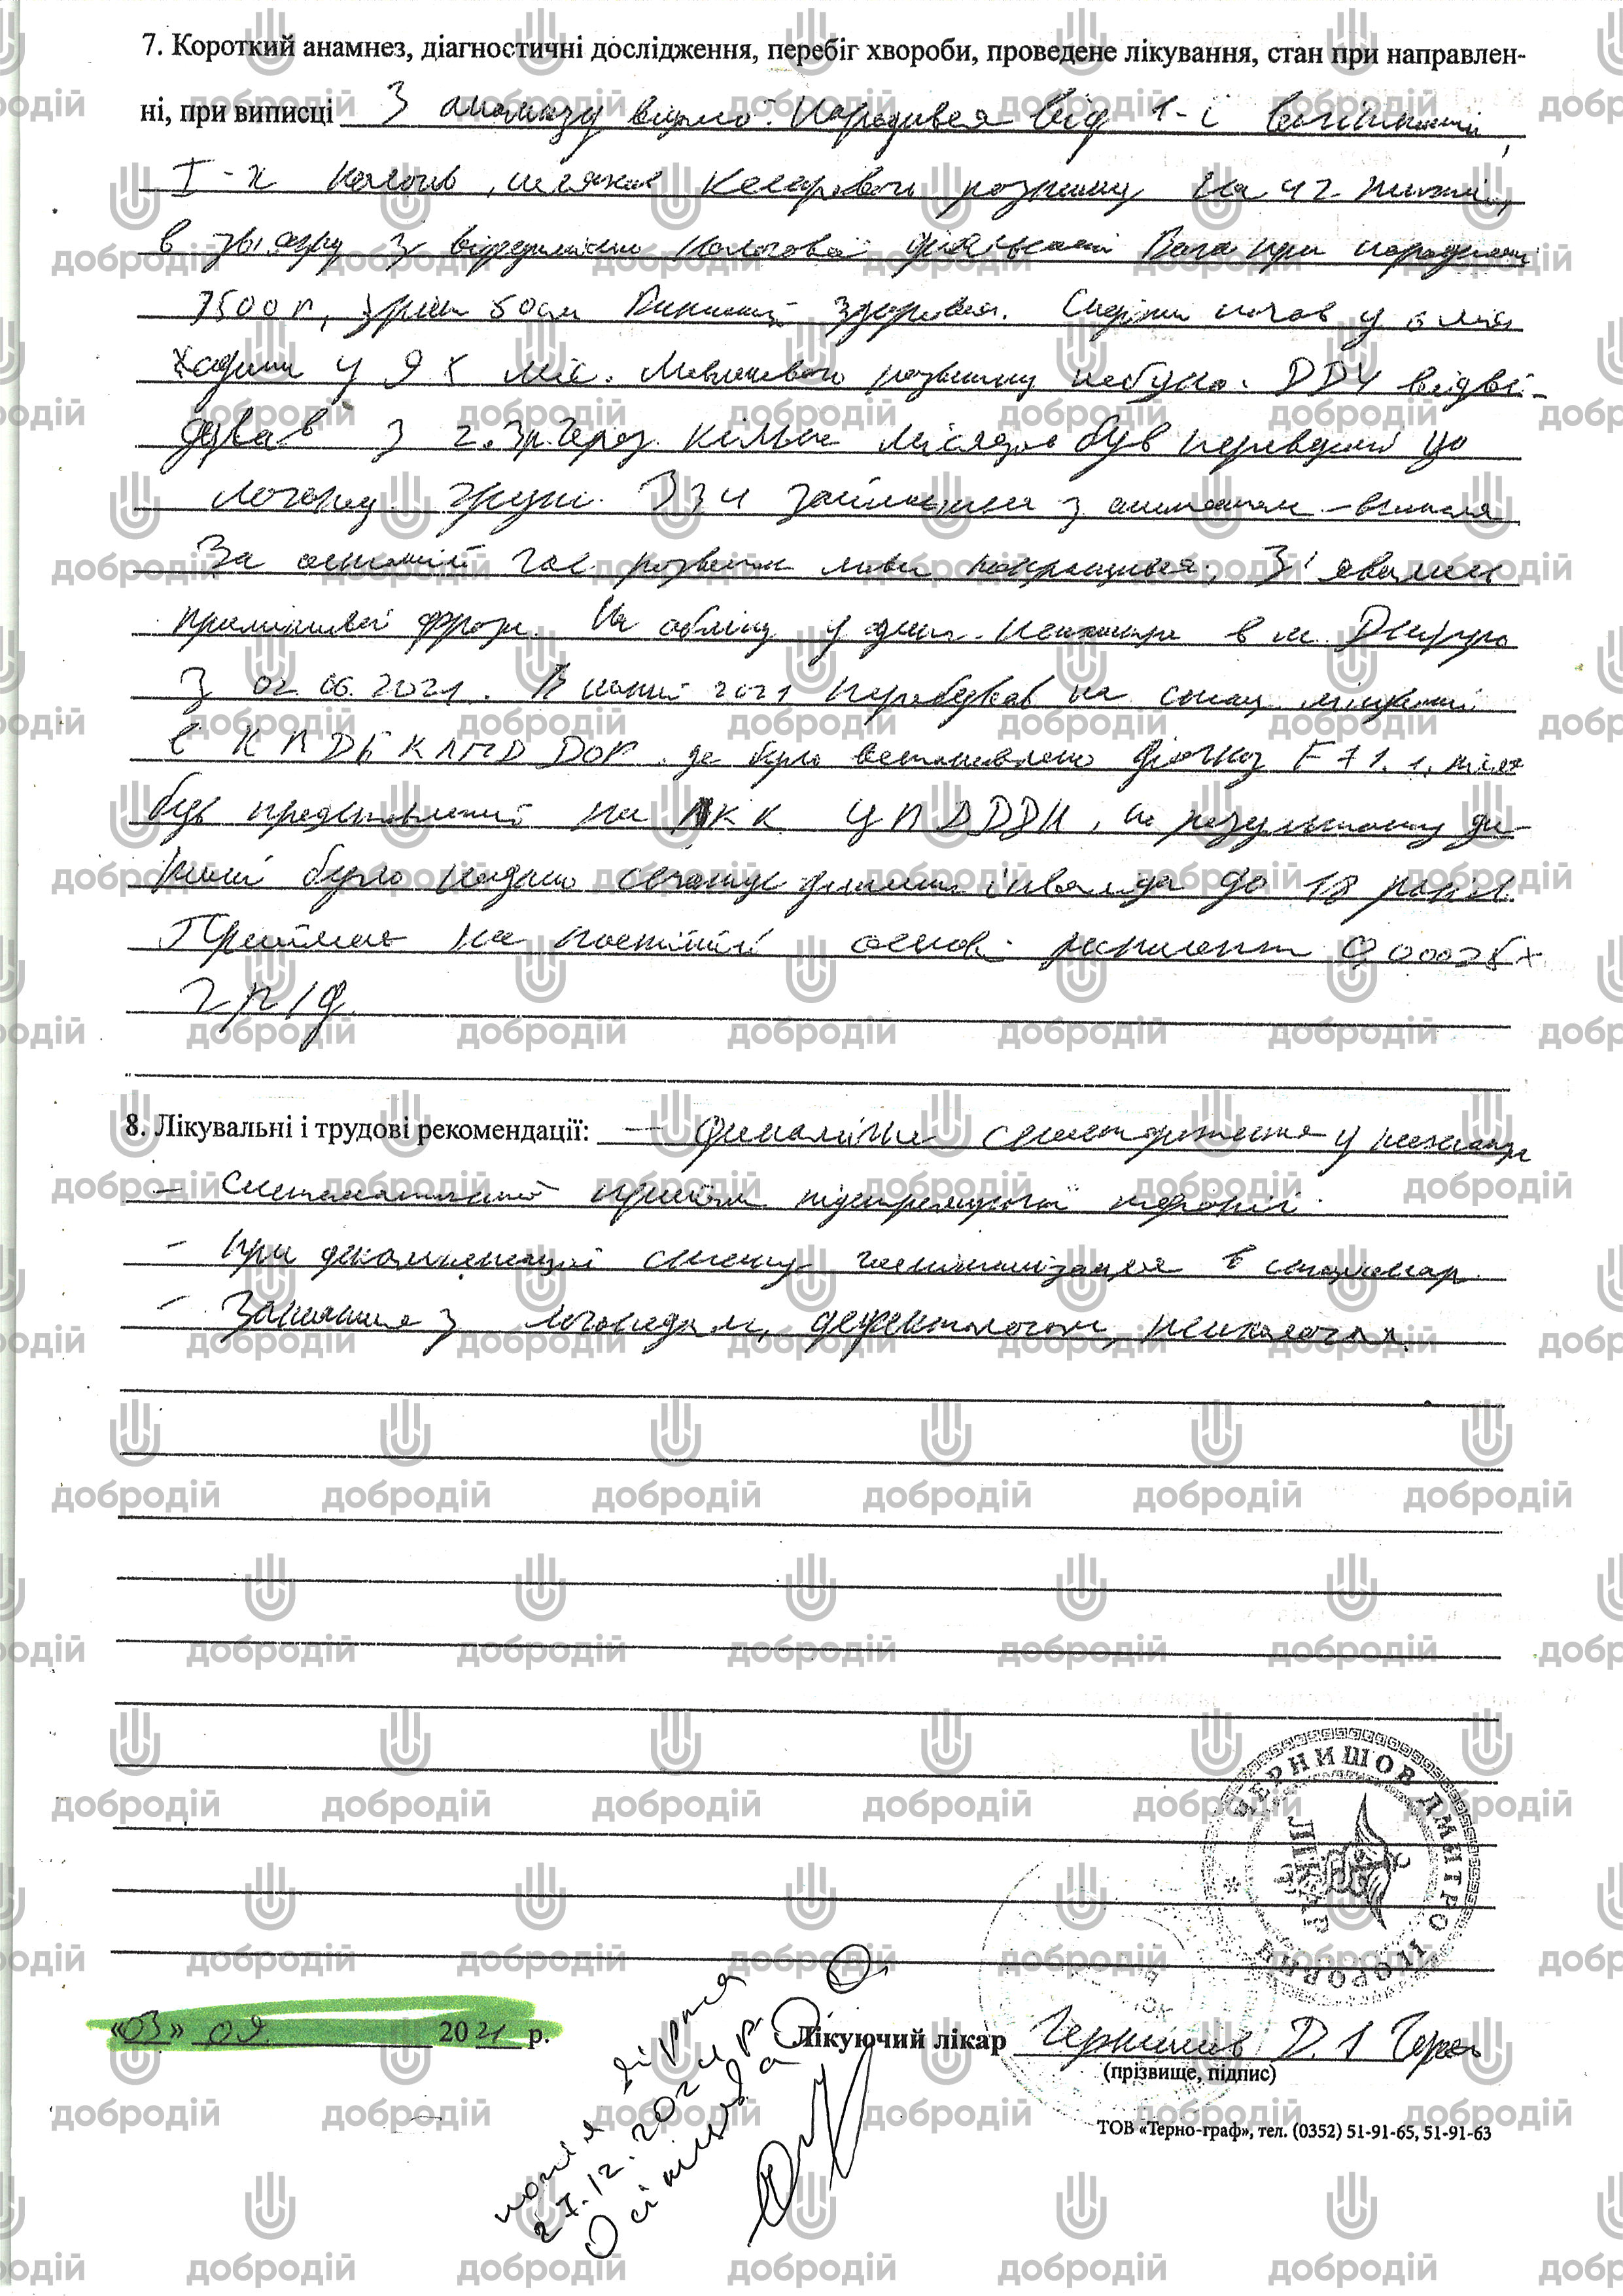 7. Короткий анамнез, діагностичні дослідження, перебіг хвороби, проведене лікування, стан при направлен-
ні, при виписці З анамнезу відомо: Народився від 1-ї вагітності,
І-х пологів, шляхом кесаревого розтину на 42 тижні,
в зв'язку з відсутністю пологової діяльності Вага при народженні
3500 г, зріст 50 см Виписаний здоровим. Сидіти почав у 6 міс
ходити у 9 міс. Мовленевого розвитку не було. ДДУ відві-
дував з 2.3р. Через кілька місяців був переведений до
логопед. групи. ЗЗЧ займаться з
За останній час розвиток мови покращився, З'явились
примітивні фрази. На обліку у дит. психіатра в м. Дніпро
З 02.06.2021. В 2021 перебував на стац. лікуванні
в КПДБКЛПД ДОР. де було встановлено діагноз F 71.1,
був представлений на ЛКК ЦПДДДН, по результату ди-
тині було надано статус дитини інваліда до 18 років.
Приймає на постійній основі рисполепт 0,00025 х
2 р/д.
8. Лікувальні і трудові рекомендації: — динамічне спостереження у психіатра
- Систематичний прийом підтримуючої терапії.
- При декомпенсації стану госпіталізація в стаціонар.
- Заняття з логопедом, дефектологом, психологом.
ЧЕРНИШОВ ДМИТРО ІГОРОВИЧ
ЛІКАР
«03» 09. 2021 р.
Лікуючий лікар Чернишов Д. І
(прізвище, підпис)
копія вірна
27.12.2024 р.
Осіпцова
ТОВ «Терно-граф», тел. (0352) 51-91-65, 51-91-63
добродій